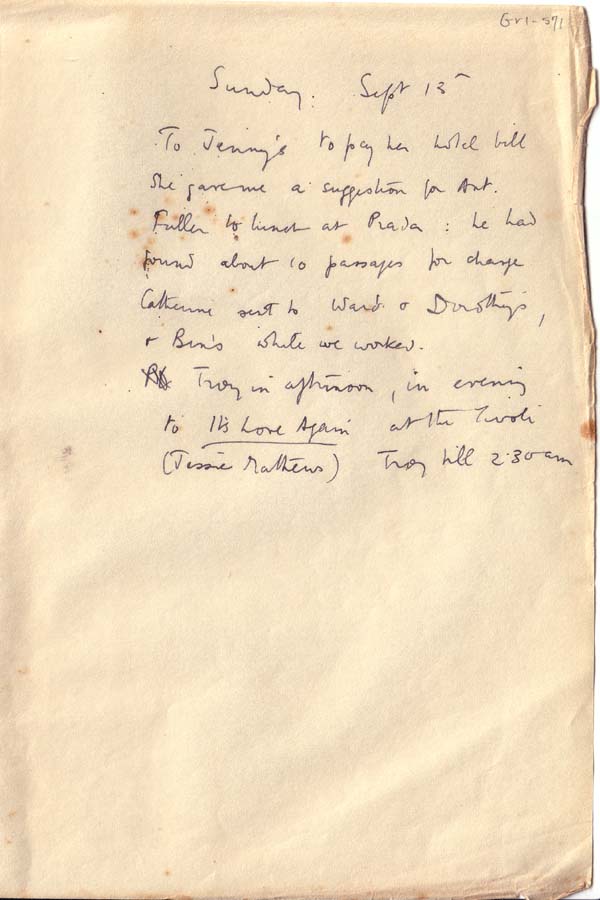 Gr1-571
Sunday. Sept 13
To Jenny's to pay her hotel bill
She gave me a suggestion for Ant.
Fuller to lunch at Prada : he had
found about 10 passages for change
Catherine sent to Ward & Dorothy's,
& Ben's while we worked.
Troy in afternoon, in evening
to It's Love Again at the Tivoli
(Jessie Mathews) Troy till 2.30 am